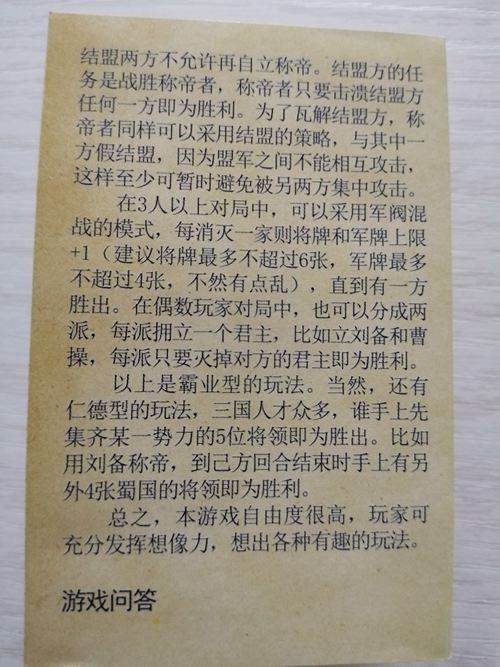 结盟两方不允许再自立称帝。结盟方的任
务是战胜称帝者，称帝者只要击溃结盟方
任何一方即为胜利。为了瓦解结盟方，称
帝者同样可以采用结盟的策略，与其中一
方假结盟，因为盟军之间不能相互攻击，
这样至少可暂时避免被另两方集中攻击。
在3人以上对局中，可以采用军阀混
战的模式，每消灭一家则将牌和军牌上限
+1（建议将牌最多不超过6张，军牌最多
不超过4张，不然有点乱），直到有一方
胜出。在偶数玩家对局中，也可以分成两
派，每派拥立一个君主，比如立刘备和曹
操，每派只要灭掉对方的君主即为胜利。
以上是霸业型的玩法。当然，还有
仁德型的玩法，三国人才众多，谁手上先
集齐某一势力的5位将领即为胜出。比如
用刘备称帝，到己方回合结束时手上有另
外4张蜀国的将领即为胜利。
总之，本游戏自由度很高，玩家可
充分发挥想像力，想出各种有趣的玩法。
游戏问答